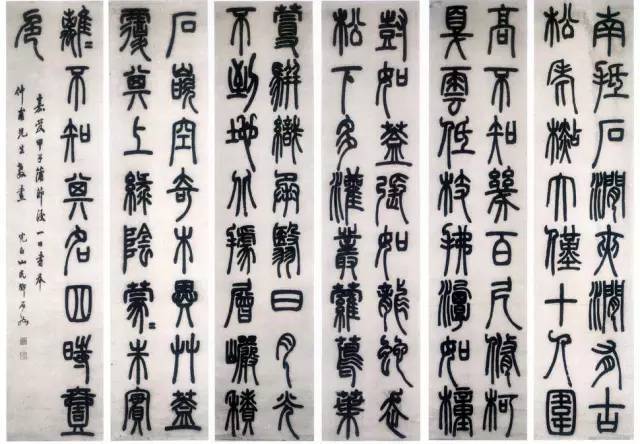 南抵石澗夾澗有古
松老檆大僅十人圍
高不知幾百尺脩柯
戛雲低枝拂潭如幢
尌如蓋張如龍蛇走
松下多灌叢蘿蔦葉
蔓駢織承翳日月光
不到地北據層巖積
石嵌空奇木異艸蓋
覆其上綠陰蒙〻朱實
離〻不知其名四時壹
色
嘉慶甲子蒲節後一日書奉
仲甫先生教 完白山民鄧石如